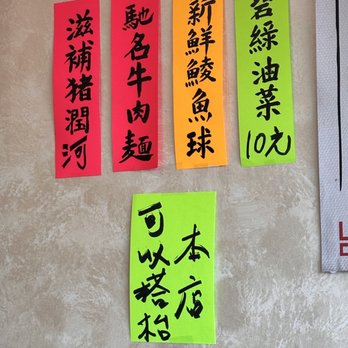 滋補猪潤河
馳名牛肉麵
新鮮鯪魚球
若綠油菜10元
本店
可以搭枱